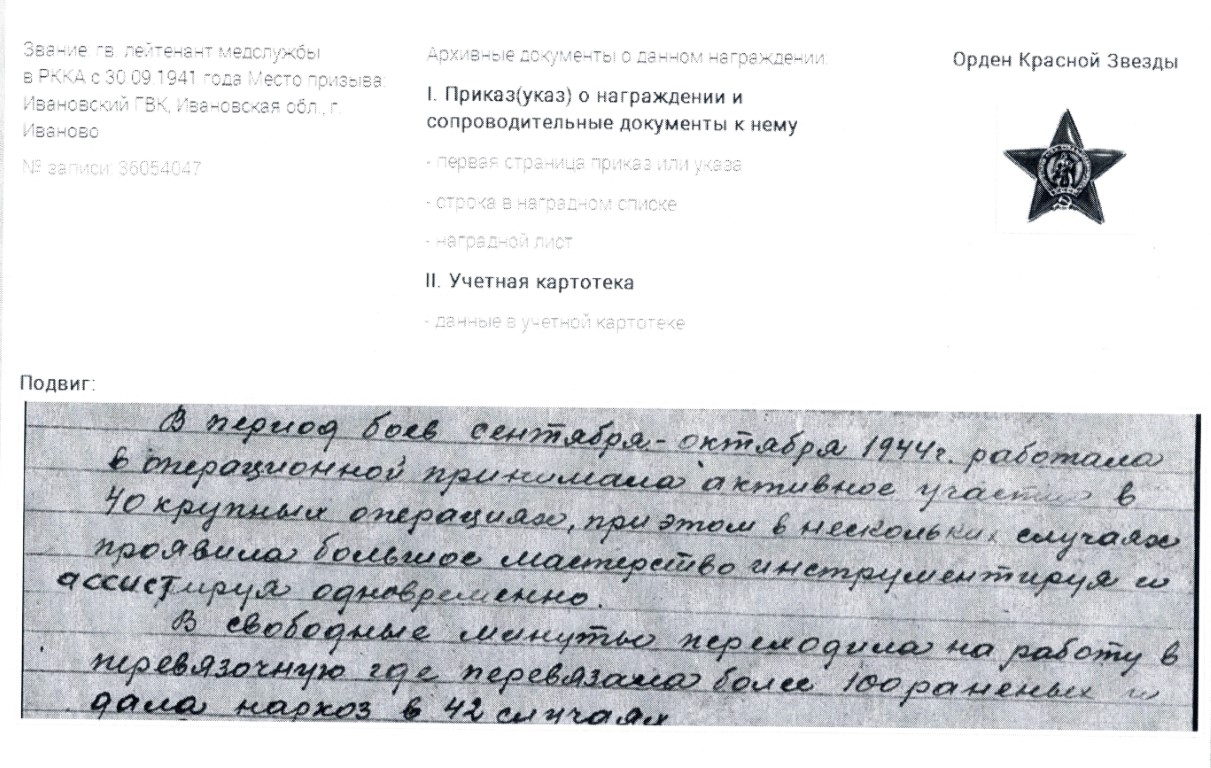 Звание: гв. лейтенант медслужбы
в РККА с 30.09.1941 года Место призыва:
Ивановский ГВК, Ивановская обл., г.
Иваново
№ записи: 36054047
Архивные документы о данном награждении:
I. Приказ(указ) о награждении и
сопроводительные документы к нему
- первая страница приказ или указа
- строка в наградном списке
- наградной лист
II. Учетная картотека
- данные в учетной картотеке
Орден Красной Звезды
Подвиг:
В период боев сентября-октября 1944г. работала
в операционной принимала активное участие в
40 крупных операциях, при этом в нескольких случаях
проявила большое мастерство инструментируя и
ассистируя одновременно.
В свободные минуты переходила на работу в
перевязочную где перевязала более 100 раненых и
дала наркоз в 42 случаях